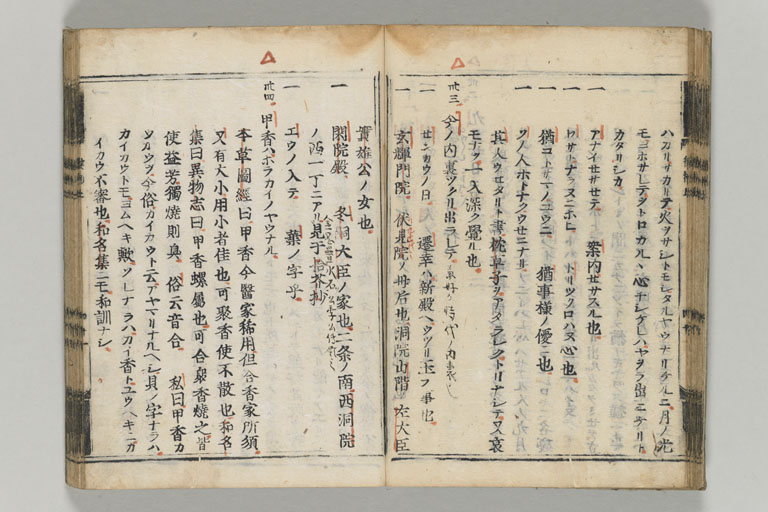 ハカリサカリテ火ヲサシトモシタルヤウナリケルニ月ノ光
モヨホサレテ ロカルヽ心チシケレハヤヲラ出ニケリト
カタリシカ
一 アナイセサセテ 案内セサスル也
一 ワサトナラヌニホヒ トリツクロハヌ心也
一 猶コトサマノユウニ 猶事様ノ優ニ也
一 ノ人ホトナクウセニナリ
其人ウセタリト書 枕草子ヲアタラシクトリナシテ又哀
モ 入深ク覺ル也
卅三 今ノ内裏ツクリ出ラレテ 兼好カ時代ノ内裏也
一 センカウノ日 遷幸ハ新殿ヘウツリ玉フ事也
一 玄輝門院 伏見院ノ母后也洞院山階左大臣
實雄公ノ女也
一 閑院殿 冬嗣大臣ノ家也二条ノ南西洞院
ノ西一丁ニアリ見于拾芥抄
一 エウノ入テ 葉ノ字乎
卅四 甲香ハホラカイノヤウナル
本草圖經曰甲香今醫家稀用但合香家所須
又有大小用小者佳也可聚香使不散也和名
集曰異物志曰甲香螺屬也可合衆香燒之皆
使益芳獨燒則臭 俗云音合 私曰甲香カ
ツカウヲ今俗カイカウト云アヤマリナルヘシ貝ノ字ナラハ
カイカウトモヨムヘキ歟ソレナラハカイ香トユウヘキニカ
イカウ不審也和名集ニモ和訓ナシ